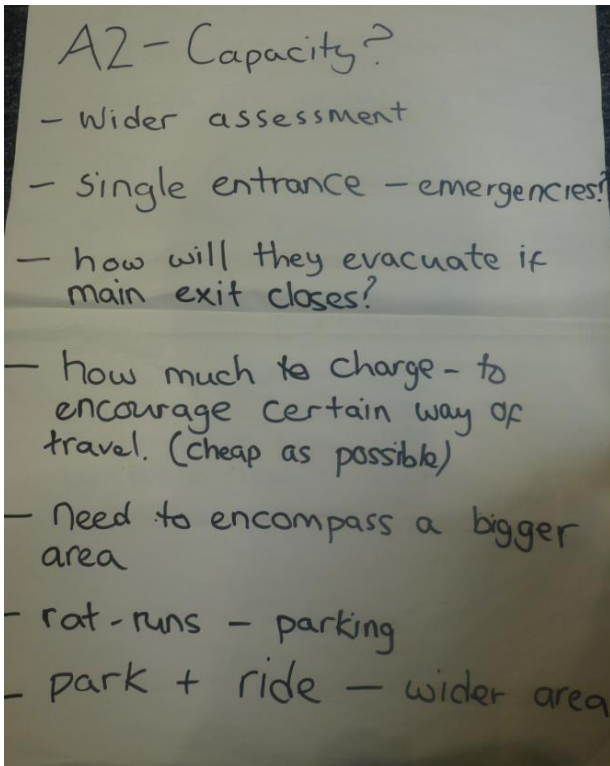 A2 - Capacity?
- wider assessment
- single entrance - emergencies?
- how will they evacuate if
main exit closes?
- how much to charge - to
encourage certain way of
travel. (cheap as possible)
- need to encompass a bigger
area
- rat-runs - parking
- park + ride - wider area